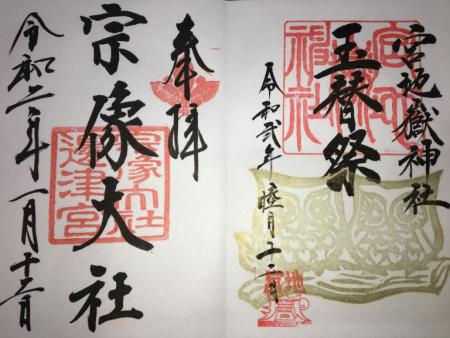 宮地嶽神社
玉替祭
令和弐年 睦月十二月
奉拝
宗像大社
令和二年一月十二日
宗像大社
邊津宮